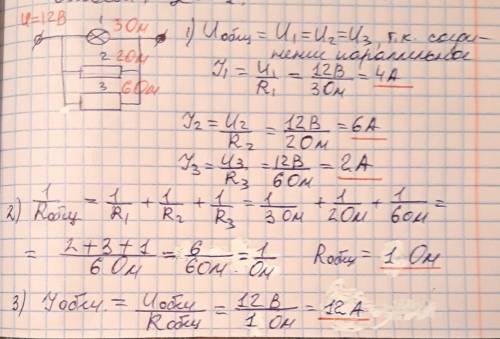 U=12В 1 3Ом
2 2Ом
3 6Ом
1) Uобщ = U1 = U2 = U3, т.к. соеди-
нении параллельное
I1 = U1/R1 = 12В/3Ом = 4А
I2 = U2/R2 = 12В/2Ом = 6А
I3 = U3/R3 = 12В/6Ом = 2А
2) 1/Rобщ = 1/R1 + 1/R2 + 1/R3 = 1/3Ом + 1/2Ом + 1/6Ом =
= 2+3+1/6Ом = 6/6Ом = 1/Ом Rобщ = 1 Ом
3) Iобщ = Uобщ/Rобщ = 12В/1Ом = 12А